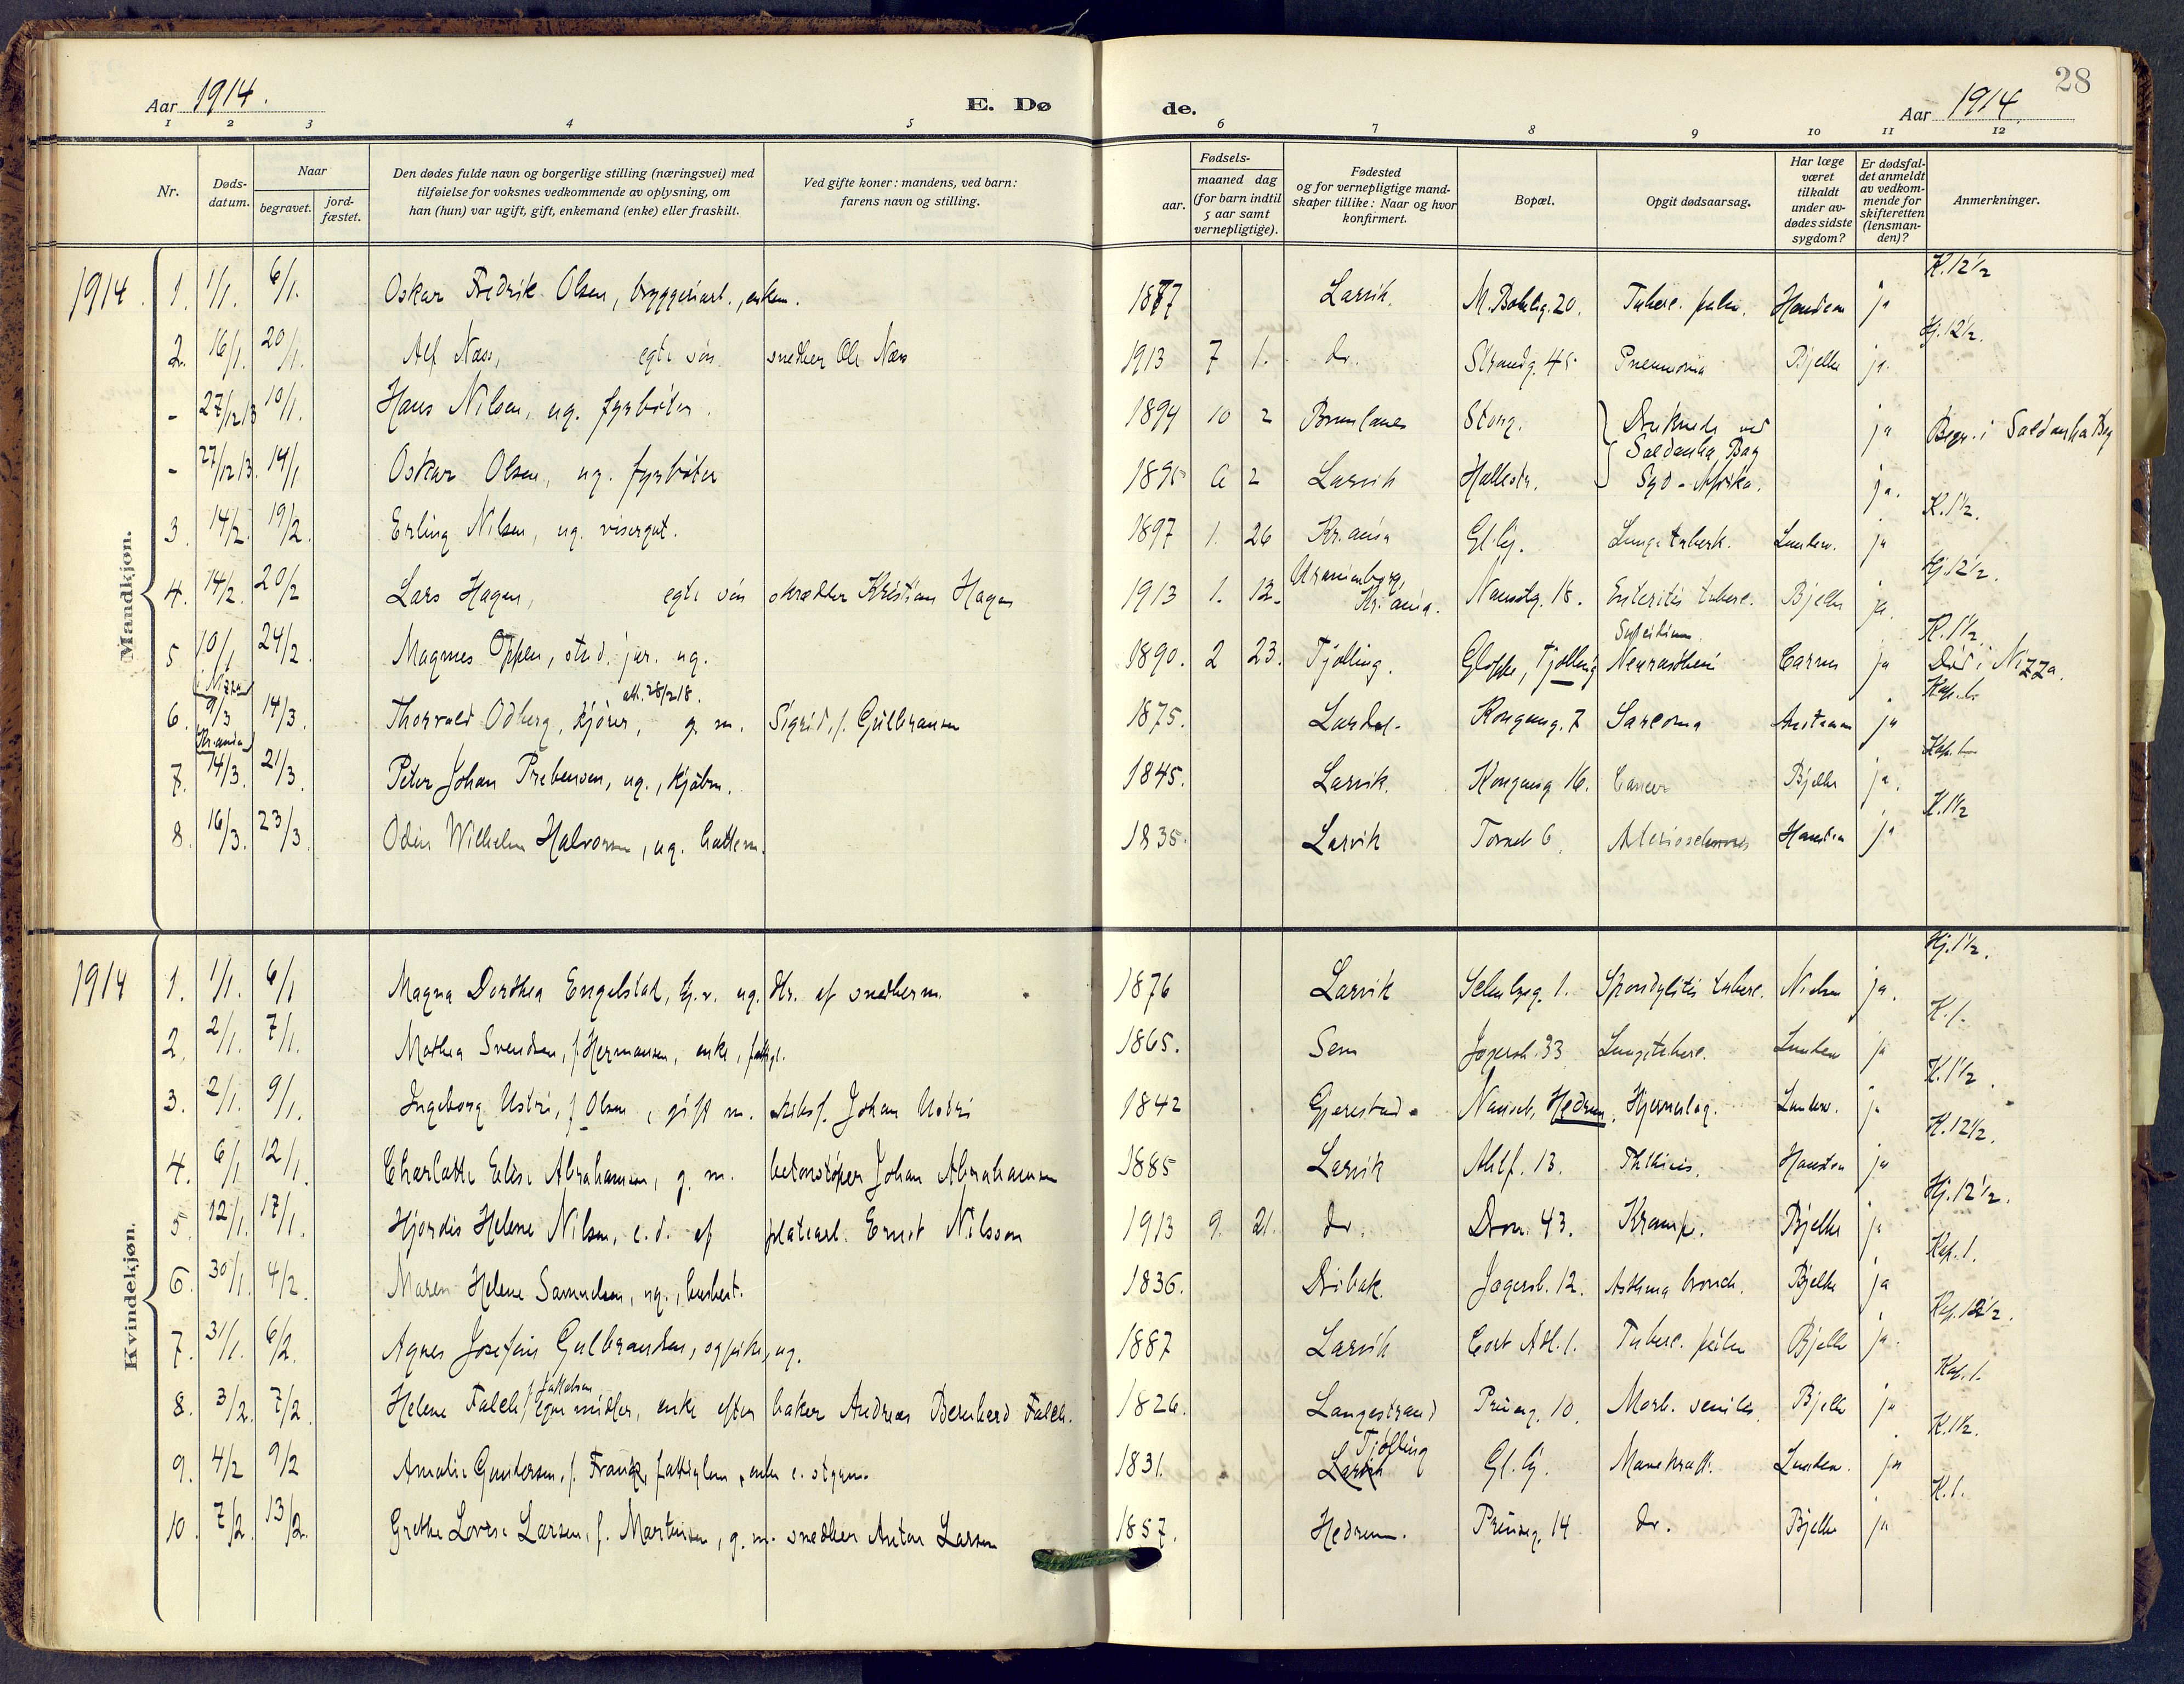 28
Aar 1914. E. Døde. Aar 1914.
1 2 3 4 5 6 7 8 9 10 11 12
Nr.
Døds-datum.
Naar
begravet.
jord-fæstet.
Den dødes fulde navn og borgerlige stilling (næringsvei) med
tilføielse for voksnes vedkommende av oplysning, om
han (hun) var ugift, gift, enkemand (enke) eller fraskilt.
Ved gifte koner: mandens, ved barn:
farens navn og stilling.
Fødsels-
aar.
maaned dag
(for barn indtil
5 aar samt
vernepligtige).
Fødested
og for vernepligtige mand-
skaper tillike: Naar og hvor
konfirmert.
Bopæl.
Opgit dødsaarsag.
Har læge
været
tilkaldt
under av-
dødes sidste
sygdom?
Er dødsfal-
det anmeldt
av vedkom-
mende for
skifteretten
(lensman-
den)?
Anmerkninger.
Mandkjøn.
1914. 1. 1/1. 6/1. Oskar Fredrik Olsen, bryggeriarb., enkem. 1877 Larvik. Tuberc. pulm. ja K. 12 1/2
2. 16/1. 20/1. Alf Næss, egte søn snedker Ole Næss 1913 7 1. do. Strandg. 45 Pneumonia Bjelke ja. Hj. 12 1/2.
- 27/12 13 10/1. Hans Nilsen, ug. fyrbøter. 1894 10 2 Brunlanes Storg. Druknede ved ja Begr. i Saldanha Bay
- 27/12 13. 14/1 Oskar Olsen, ug. fyrbøter 1895 6 2 Larvik Hallestr. Saldanha Bay Syd-Afrika. ja.
3. 14/2. 19/2. Erling Nilsen, ug. visergut. 1897 1. 26 Kr.ania Gl. Lungetuberk. Lunden. ja K. 1 1/2.
4. 14/2. 20/2 Lars Hagen, egte søn skrædder Kristian Hagen 1913 1. 12. Uranienborg, Kr.ania. Nansetg. 18. Enteritis tuberc. Bjelke ja. Hj. 12 1/2.
5 10/1 i Nizza 24/2. Magnus Oppen, stud. jur. ug. 1890. 2 23. Tjølling. Gloppe, Tjølling Suicidium. Neurastheni ja K. 1 1/2. Død i Nizza.
6. 9/3 Kr.ania 14/3. Thorvald Odberg, kjører, g. m. Sigrid, f. Gulbransen 1875. Lardal. Kongeg. 7 Sarcoma ja Kap. 1.
7. 14/3. 21/3. Peter Johan Prebensen, ug., kjøbm. 1845. Larvik. Kongeg. 16. Cancer Bjelke ja. Kap. 1
8. 16/3. 23/3. Odin Wilhelm Halvorsen, ug. hattem. 1835. Larvik Torvet 6. ja K. 1 1/2
Kvindekjøn.
1914 1. 1/1. 6/1 Magna Dorthea Engelstad, ug. dtr. af snedkerm. 1876 Larvik 1. Spondylitis tuberc. Nielsen ja. Hj. 1 1/2.
2. 2/1. 7/1. Mathea Svendsen, f. Hermansen, enke, fattigl. 1865. Sem Jegersb. 33 Lungetuberc. Lunden ja K. 1.
3. 2/1. 9/1. Ingeborg Ustvi, f. Olsen, gift m. skibsf. Johan Ustvi 1842 Gjerestad. Nanset, Hedrum. Hjerneslag. Lunden. ja K. 1 1/2.
4. 6/1 12/1. Charlotte Elise Abrahamsen, g. m. betonstøper Johan Abrahamsen 1885 Larvik 13. Phthisis. ja K. 12 1/2.
5. 12/1. 17/1. Hjørdis Helene Nilsen, e. d. af platearb. Ernst Nilsson 1913 9. 21. do. Dron. 43. Krampe. Bjelke ja Hj. 12 1/2.
6. 30/1. 4/2. Maren Helene Samuelsen, ug., husbest. 1836. Drøbak Jegersb. 12. Asthma bronch. Bjelke ja Kap. 1.
7. 31/1. 6/2. Agnes Josefine Gulbrandsen, sypike, ug. 1887 Larvik Cort Adl. 1. Tuberc. pulm Bjelke ja. Kap. 12 1/2.
8. 3/2. 7/2. Helene Falch, f. Jakobsen egne midler, enke efter baker Andreas Bernhard Falch. 1826. Langestrand Prinseg. 10. Marb. senilis Bjelke ja Kap. 1.
9. 4/2 9/2 Amalie Gundersen, f. Frantz, fattiglem, enke e. 1831. Tjølling Larvik Gl. Lunden. ja K. 1 1/2.
10. 7/2. 13/2. Grethe Lovise Larsen, f. Martinsen, g. m. snedker Anton Larsen 1857. Hedrum. Prinseg. 14 do. Bjelke ja K. 1.